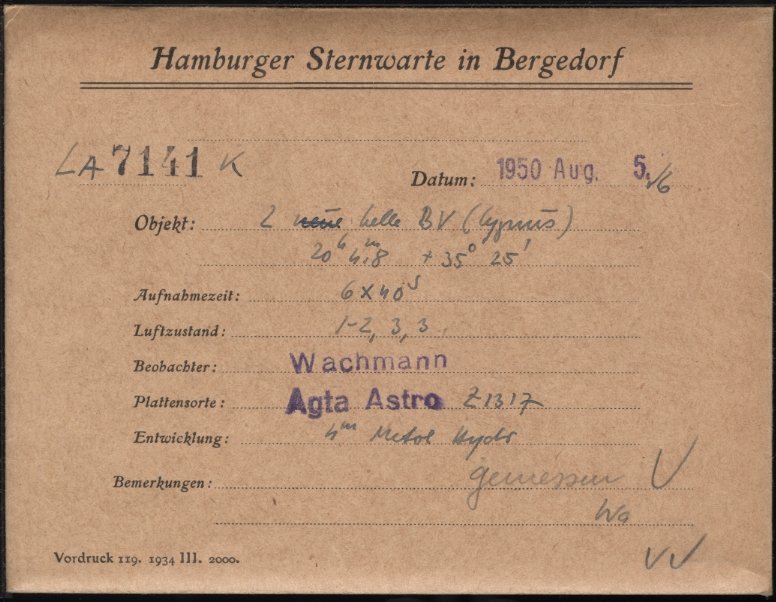 Hamburger Sternwarte in Bergedorf
LA 7141 K
Datum: 1950 Aug. 5./6
Objekt: 2 neue helle BV (Cygnus)
20h 4m.8 + 35° 25'
Aufnahmezeit: 6x40s
Luftzustand: 1-2, 3, 3
Beobachter: Wachmann
Plattensorte: Agfa Astro Z1317
Entwicklung: 4m Metol Hydr
Bemerkungen: gemessen V
Wa
Vordruck 119. 1934 III. 2000.
VV